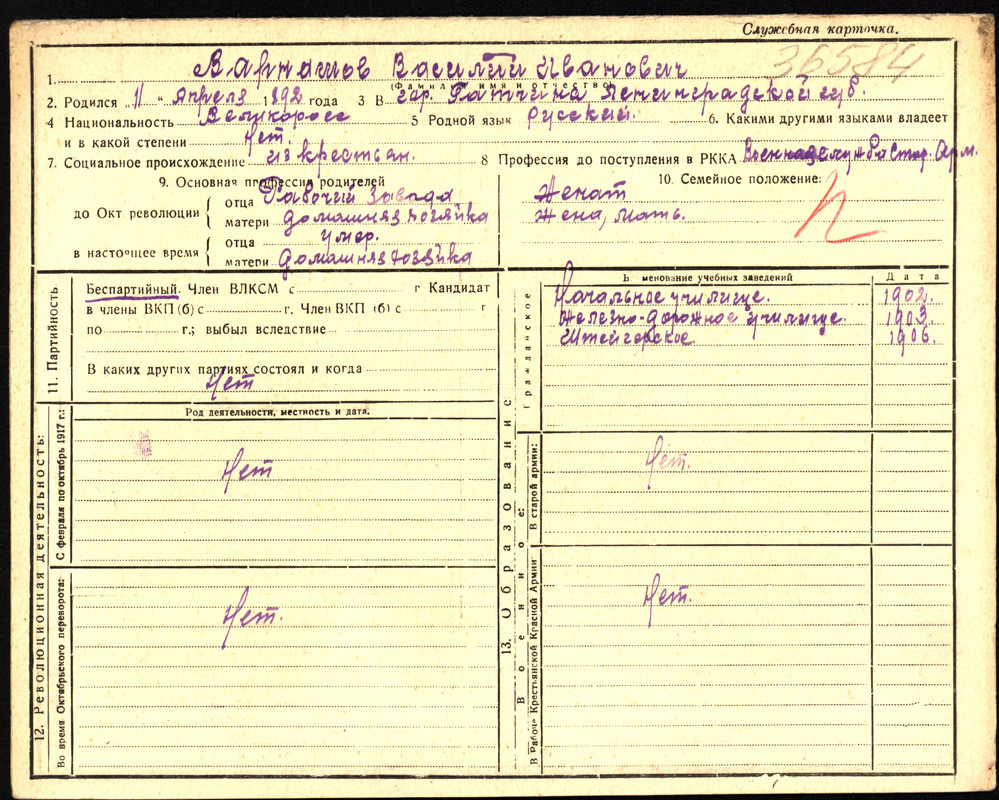 Служебная карточка.
36584
1. Варнашов Василий Иванович
(Фамилия, имя и отчество)
2. Родился „11“ Апреля 1892 года 3 В гор. Гатчина Ленинградской губ.
4 Национальность Великоросс 5 Родной язык Русский. 6. Какими другими языками владеет
и в какой степени Нет.
7. Социальное происхождение из крестьян. 8 Профессия до поступления в РККА Стар. Арм.
9. Основная профессия родителей
до Окт революции { отца Рабочий завода
матери домашняя хозяйка
в настоящее время { отца умер.
матери домашняя хозяйка
10. Семейное положение:
Женат
Жена, мать.
11. Партийность
Беспартийный. Член ВЛКСМ с г Кандидат
в члены ВКП (б) с г. Член ВКП (б) с г
по г.; выбыл вследствие
В каких других партиях состоял и когда
Нет
12. Революционная деятельность:
Род деятельности, местность и дата.
С февраля по октябрь 1917 г.:
Нет
Во время Октябрьского переворота:
Нет.
13. Образование
Гражданское
менование учебных заведений Дата
Начальное училище. 1902.
Железно-дорожное училище. 1903.
Штейгерское. 1906.
Военное:
В старой армии:
Нет.
В Рабоче Крестьянской Красной Армии
Нет.